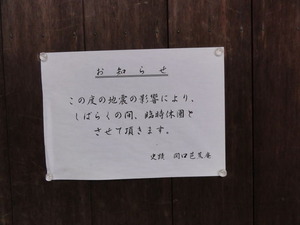 お知らせ
この度の地震の影響により、
しばらくの間、臨時休園と
させて頂きます。
史跡 関口芭蕉庵